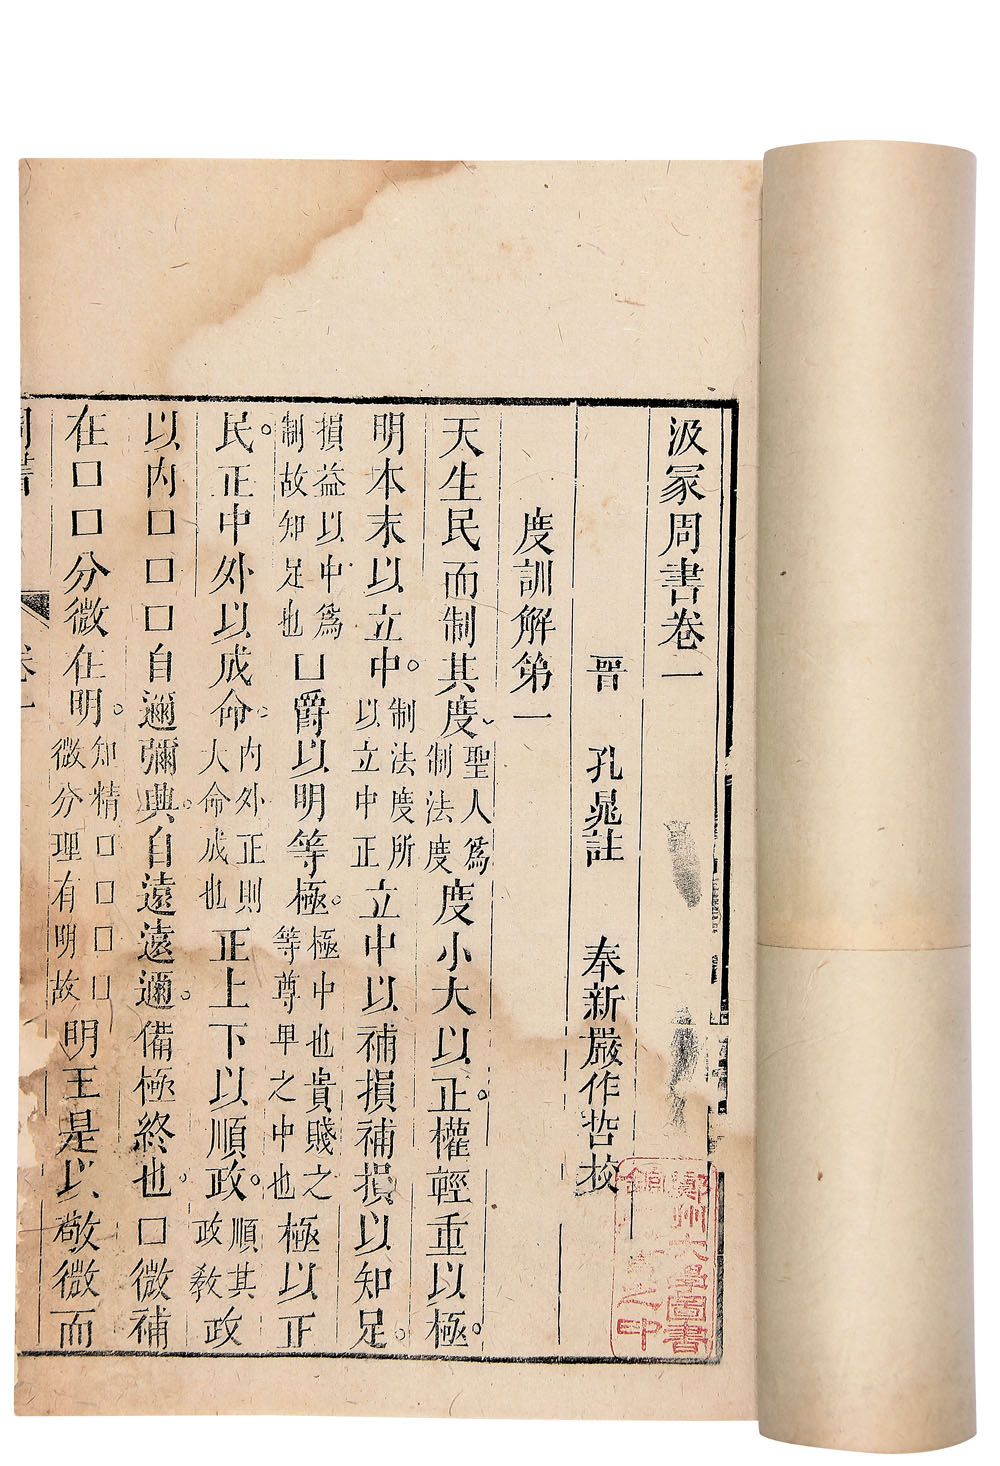 汲冢周書卷一
晉　孔晁註　奉新嚴作哲校
度訓解第一
天生民而制其度聖人爲制法度度小大以正。權輕重以極。
明本末以立中。制法度所以立中正立中以補損補損以知足。
損益以中爲制故知足也□爵以明等極。極中也貴賤之等尊卑之中也極以正
民。正中外以成命。內外正則大命成也正上下以順政。順其政教政
以内□□□自邇彌興。自遠遠邇。備極終也。□微補
在□□分微在明。知精□□□□微分理有明故明王是以敬微而
周書
卷一
鄭州大學圖書
館之印